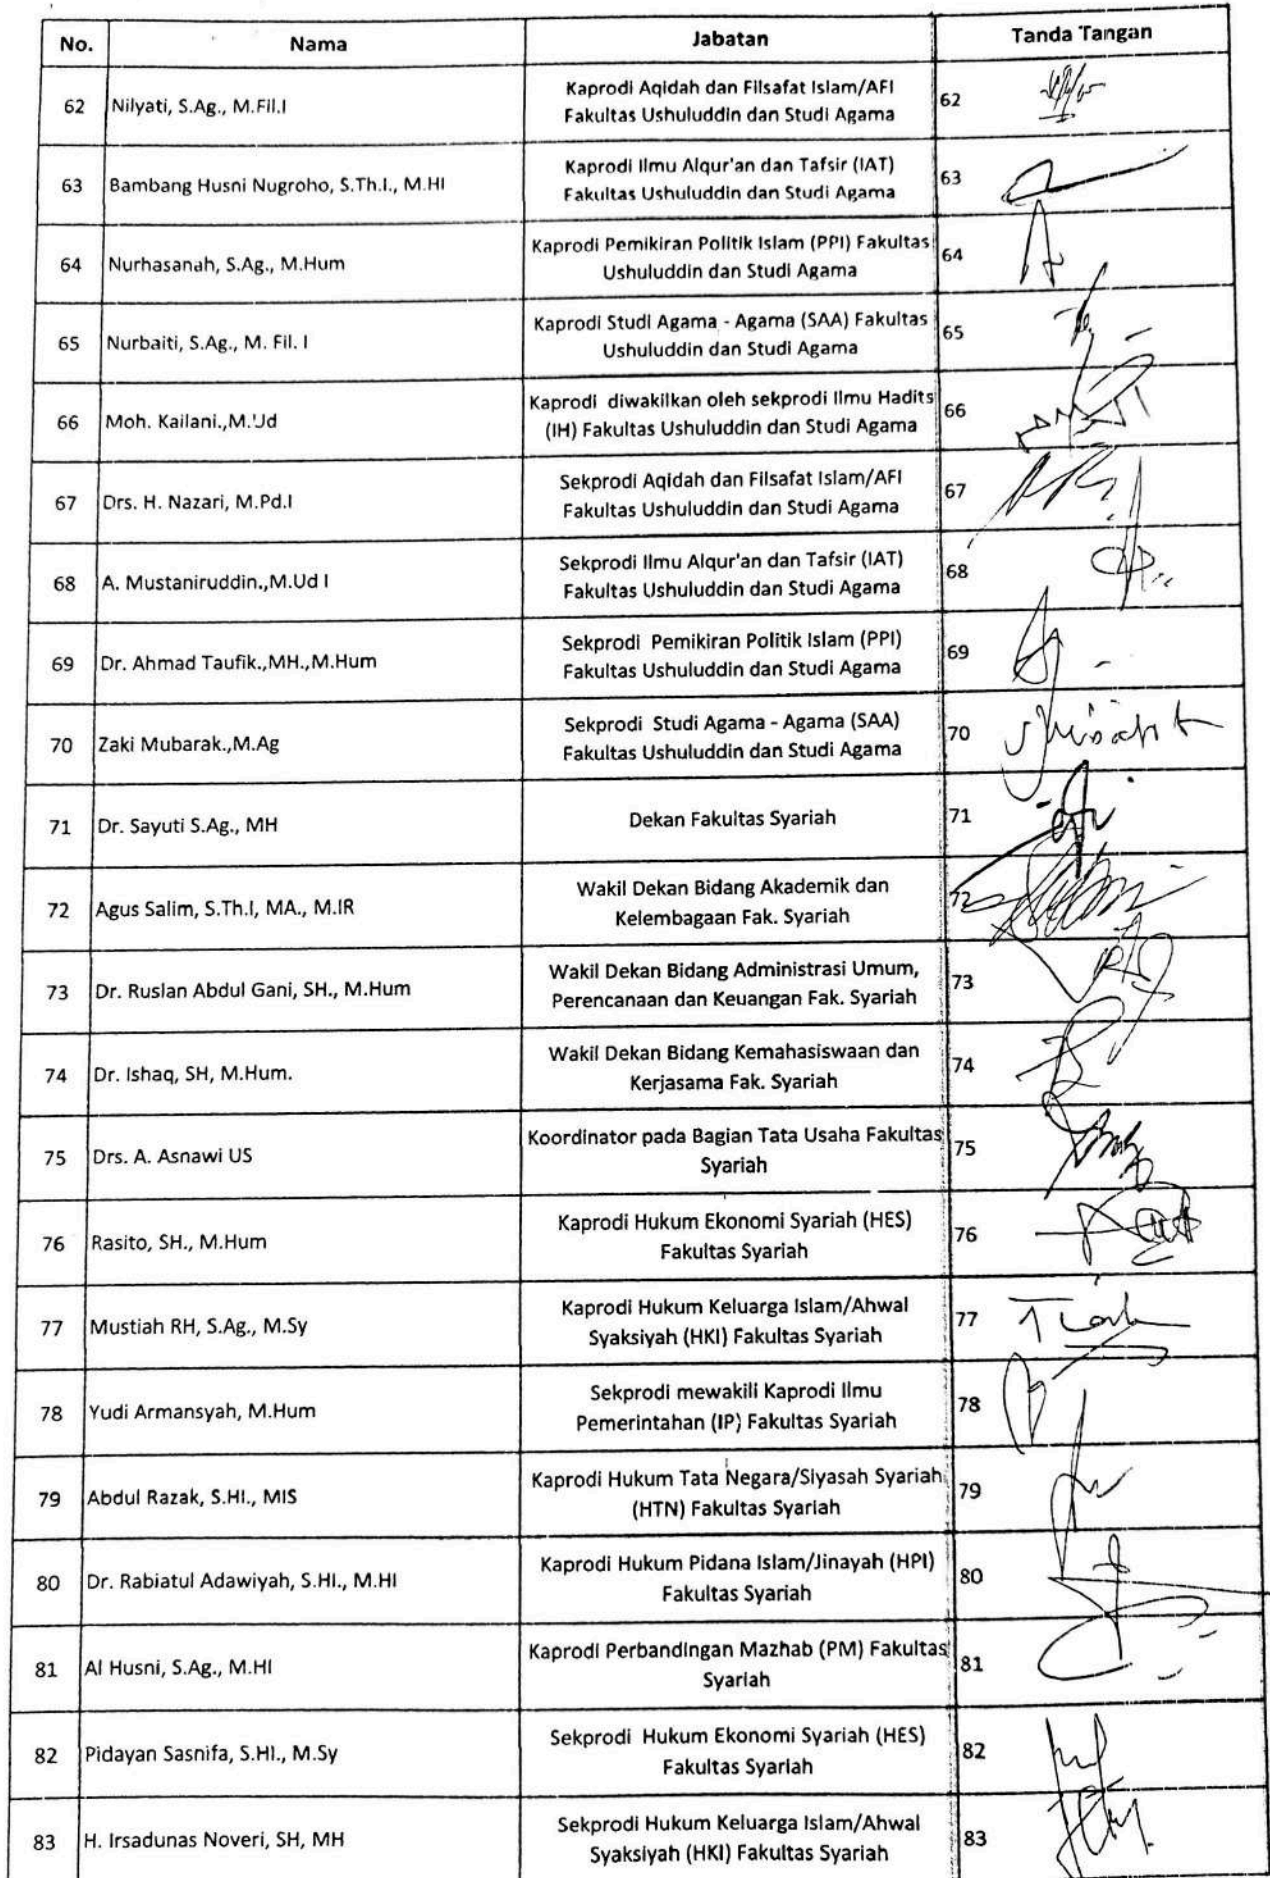 No. Nama Jabatan Tanda Tangan
62 Nilyati, S.Ag., M.Fil.I Kaprodi Aqidah dan Filsafat Islam/AFI 62
Fakultas Ushuluddin dan Studi Agama
63 Bambang Husni Nugroho, S.Th.I., M.HI Kaprodi Ilmu Alqur'an dan Tafsir (IAT) 63
Fakultas Ushuluddin dan Studi Agama
64 Nurhasanah, S.Ag., M.Hum Kaprodi Pemikiran Politik Islam (PPI) Fakultas 64
Ushuluddin dan Studi Agama
65 Nurbaiti, S.Ag., M. Fil. I Kaprodi Studi Agama - Agama (SAA) Fakultas 65
Ushuluddin dan Studi Agama
66 Moh. Kailani.,M.Ud Kaprodi diwakilkan oleh sekprodi Ilmu Hadits 66
(IH) Fakultas Ushuluddin dan Studi Agama
67 Drs. H. Nazari, M.Pd.I Sekprodi Aqidah dan Filsafat Islam/AFI 67
Fakultas Ushuluddin dan Studi Agama
68 A. Mustaniruddin.,M.Ud I Sekprodi Ilmu Alqur'an dan Tafsir (IAT) 68
Fakultas Ushuluddin dan Studi Agama
69 Dr. Ahmad Taufik.,MH.,M.Hum Sekprodi Pemikiran Politik Islam (PPI) 69
Fakultas Ushuluddin dan Studi Agama
70 Zaki Mubarak.,M.Ag Sekprodi Studi Agama - Agama (SAA) 70
Fakultas Ushuluddin dan Studi Agama
71 Dr. Sayuti S.Ag., MH Dekan Fakultas Syariah 71
72 Agus Salim, S.Th.I, MA., M.IR Wakil Dekan Bidang Akademik dan 72
Kelembagaan Fak. Syariah
73 Dr. Ruslan Abdul Gani, SH., M.Hum Wakil Dekan Bidang Administrasi Umum, 73
Perencanaan dan Keuangan Fak. Syariah
74 Dr. Ishaq, SH, M.Hum. Wakil Dekan Bidang Kemahasiswaan dan 74
Kerjasama Fak. Syariah
75 Drs. A. Asnawi US Koordinator pada Bagian Tata Usaha Fakultas 75
Syariah
76 Rasito, SH., M.Hum Kaprodi Hukum Ekonomi Syariah (HES) 76
Fakultas Syariah
77 Mustiah RH, S.Ag., M.Sy Kaprodi Hukum Keluarga Islam/Ahwal 77
Syaksiyah (HKI) Fakultas Syariah
78 Yudi Armansyah, M.Hum Sekprodi mewakili Kaprodi Ilmu 78
Pemerintahan (IP) Fakultas Syariah
79 Abdul Razak, S.HI., MIS Kaprodi Hukum Tata Negara/Siyasah Syariah 79
(HTN) Fakultas Syariah
80 Dr. Rabiatul Adawiyah, S.HI., M.HI Kaprodi Hukum Pidana Islam/Jinayah (HPI) 80
Fakultas Syariah
81 Al Husni, S.Ag., M.HI Kaprodi Perbandingan Mazhab (PM) Fakultas 81
Syariah
82 Pidayan Sasnifa, S.HI., M.Sy Sekprodi Hukum Ekonomi Syariah (HES) 82
Fakultas Syariah
83 H. Irsadunas Noveri, SH, MH Sekprodi Hukum Keluarga Islam/Ahwal 83
Syaksiyah (HKI) Fakultas Syariah